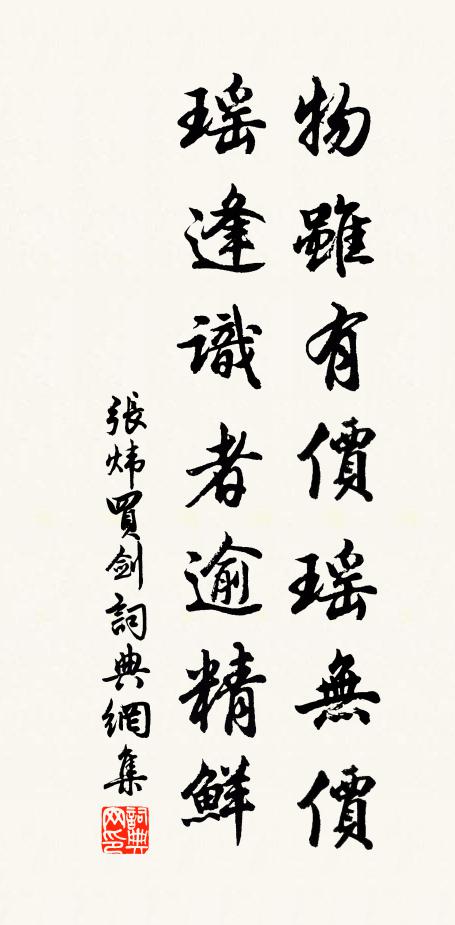 物雖有價瑶無價
瑶逢識者逾精鮮
張煒買劍詞典網集
詞典网印